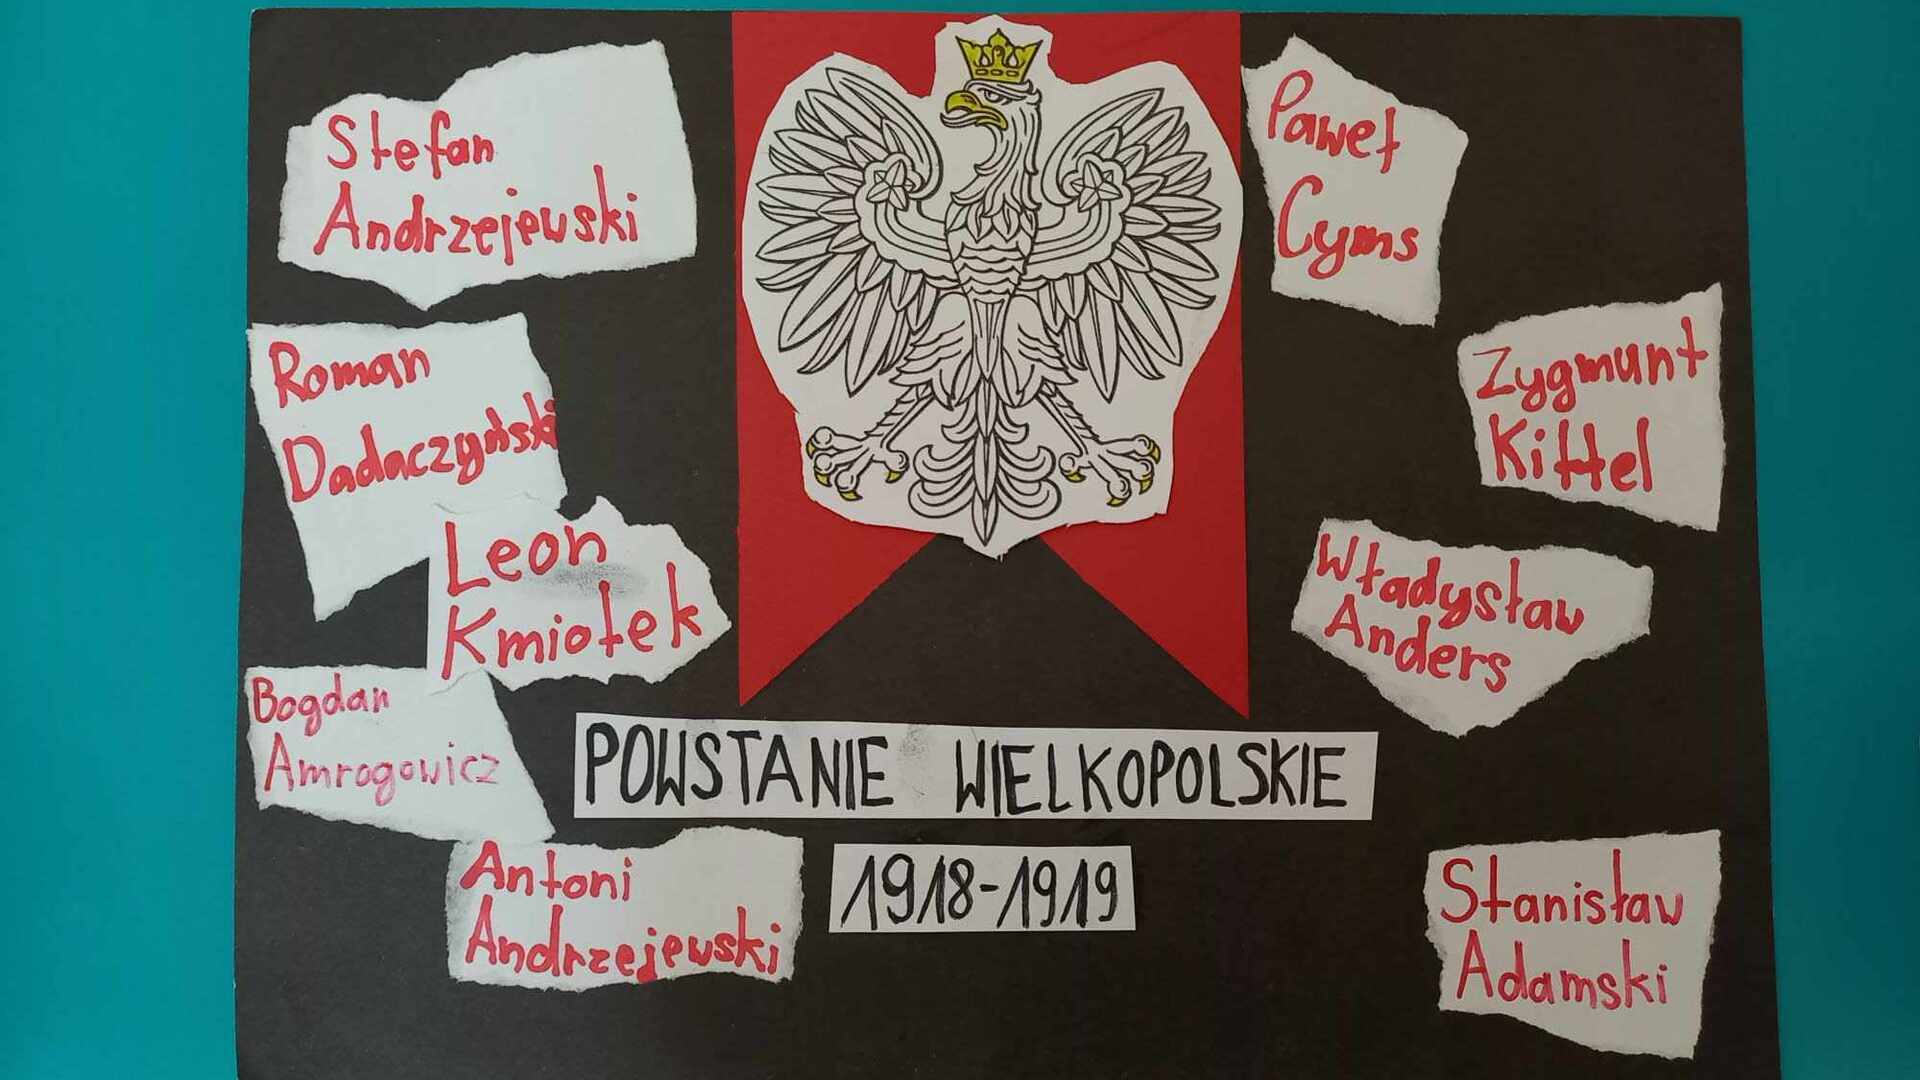 Stefan
Andrzejewski
Roman
Dadaczyński
Leon
Kmiotek
Bogdan
Amrogowicz
Antoni
Andrzejewski
Paweł
Cyms
Zygmunt
Kittel
Władysław
Anders
Stanisław
Adamski
POWSTANIE WIELKOPOLSKIE
1918-1919